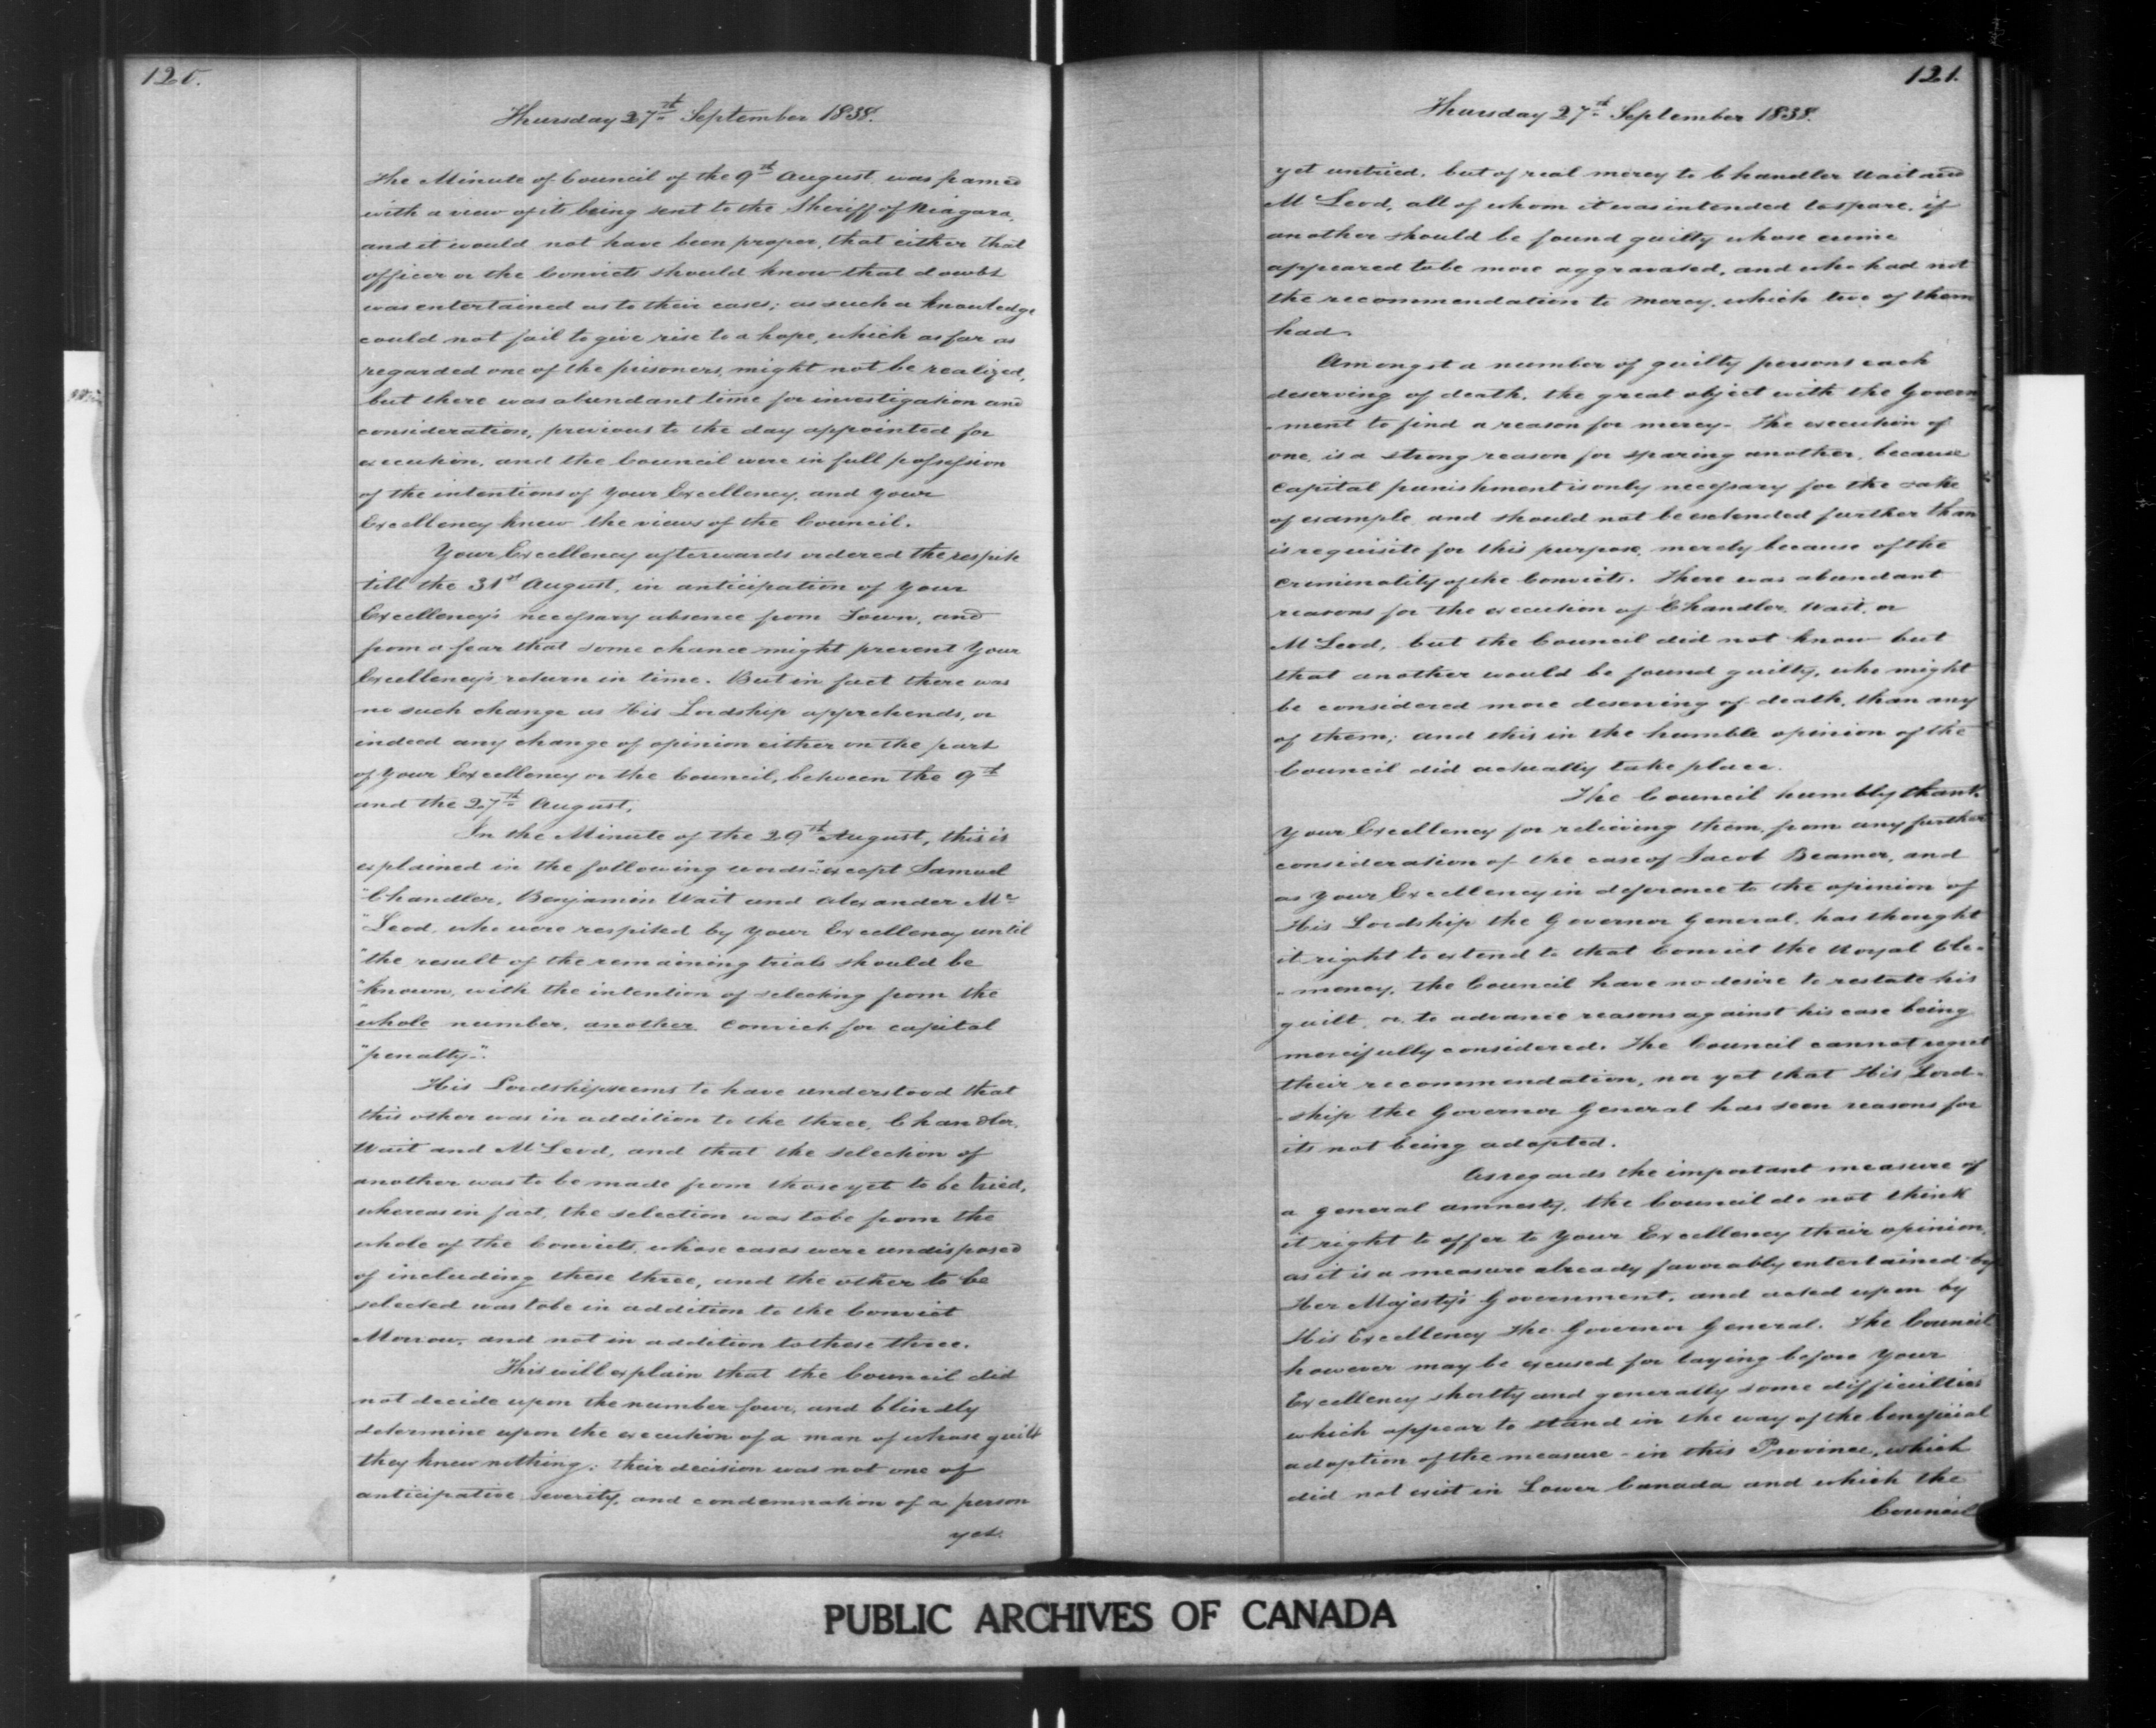 120.
Thursday 27th September 1838.
The Minute of Council of the 9th August, was framed
with a view of its being sent to the Sheriff of Niagara,
and it would not have been proper, that either that
officer or the Convicts should know that doubt
was entertained as to their cases; as such a knowledge
could not fail to give rise to a hope, which as far as
regarded one of the prisoners might not be realized,
but there was abundant time for investigation and
consideration, previous to the day appointed for
execution, and the Council were in full possession
of the intentions of Your Excellency, and Your
Excellency knew the views of the Council.
Your Excellency afterwards ordered the respite
till the 31st August, in anticipation of Your
Excellency's necessary absence from Town, and
from a fear that some chance might prevent Your
Excellency's return in time. But in fact there was
no such change as His Lordship apprehends, or
indeed any change of opinion either on the part
of Your Excellency or the Council, between the 9th
and the 27th August.
In the Minute of the 29th August, this is
explained in the following words: "except Samuel
"Chandler, Benjamin Wait and Alexander Mc
"Leod, who were respited by Your Excellency until
"the result of the remaining trials should be
"known, with the intention of selecting from the
"whole number, another Convict for capital
"penalty".
His Lordship seems to have understood that
this other was in addition to the three, Chandler,
Wait and McLeod, and that the selection of
another was to be made from those yet to be tried,
whereas in fact, the selection was to be from the
whole of the Convicts, whose cases were undisposed
of including these three, and the other to be
selected was to be in addition to the Convict
Morrow, and not in addition to these three.
This will explain that the Council did
not decide upon the number four, and blindly
determine upon the execution of a man of whose guilt
they knew nothing; their decision was not one of
anticipative severity, and condemnation of a person
yet
121.
Thursday 27th September 1838.
yet untried, but of real mercy to Chandler Wait and
McLeod, all of whom it was intended to spare, if
another should be found guilty whose crime
appeared to be more aggravated, and who had not
the recommendation to mercy, which two of them
had.
Amongst a number of guilty persons each
deserving of death, the great object with the Govern
-ment to find a reason for mercy. The execution of
one, is a strong reason for sparing another, because
Capital punishment is only necessary for the sake
of example, and should not be extended further than
is requisite for this purpose, merely because of the
criminality of the Convicts. There was abundant
reasons for the execution of Chandler, Wait, or
McLeod, but the Council did not know but
that another would be found guilty, who might
be considered more deserving of death, than any
of them; and this in the humble opinion of the
Council did actually take place.
The Council humbly thank
Your Excellency for relieving them from any further
consideration of the case of Jacob Beamer, and
as Your Excellency in deference to the opinion of
His Lordship the Governor General, has thought
it right to extend to that Convict the Royal Cle-
-mency, the Council have no desire to restate his
guilt, or to advance reasons against his case being
mercifully considered. The Council cannot regret
their recommendation, nor yet that His Lord-
-ship the Governor General has seen reasons for
its not being adopted.
As regards the important measure of
a general amnesty, the Council do not think
it right to offer to Your Excellency their opinion,
as it is a measure already favorably entertained by
Her Majesty's Government, and acted upon by
His Excellency The Governor General. The Council
however may be excused for laying before Your
Excellency shortly and generally some difficulties
which appear to stand in the way of the beneficial
adoption of the measure - in this Province, which
did not exist in Lower Canada and which the
Council
PUBLIC ARCHIVES OF CANADA